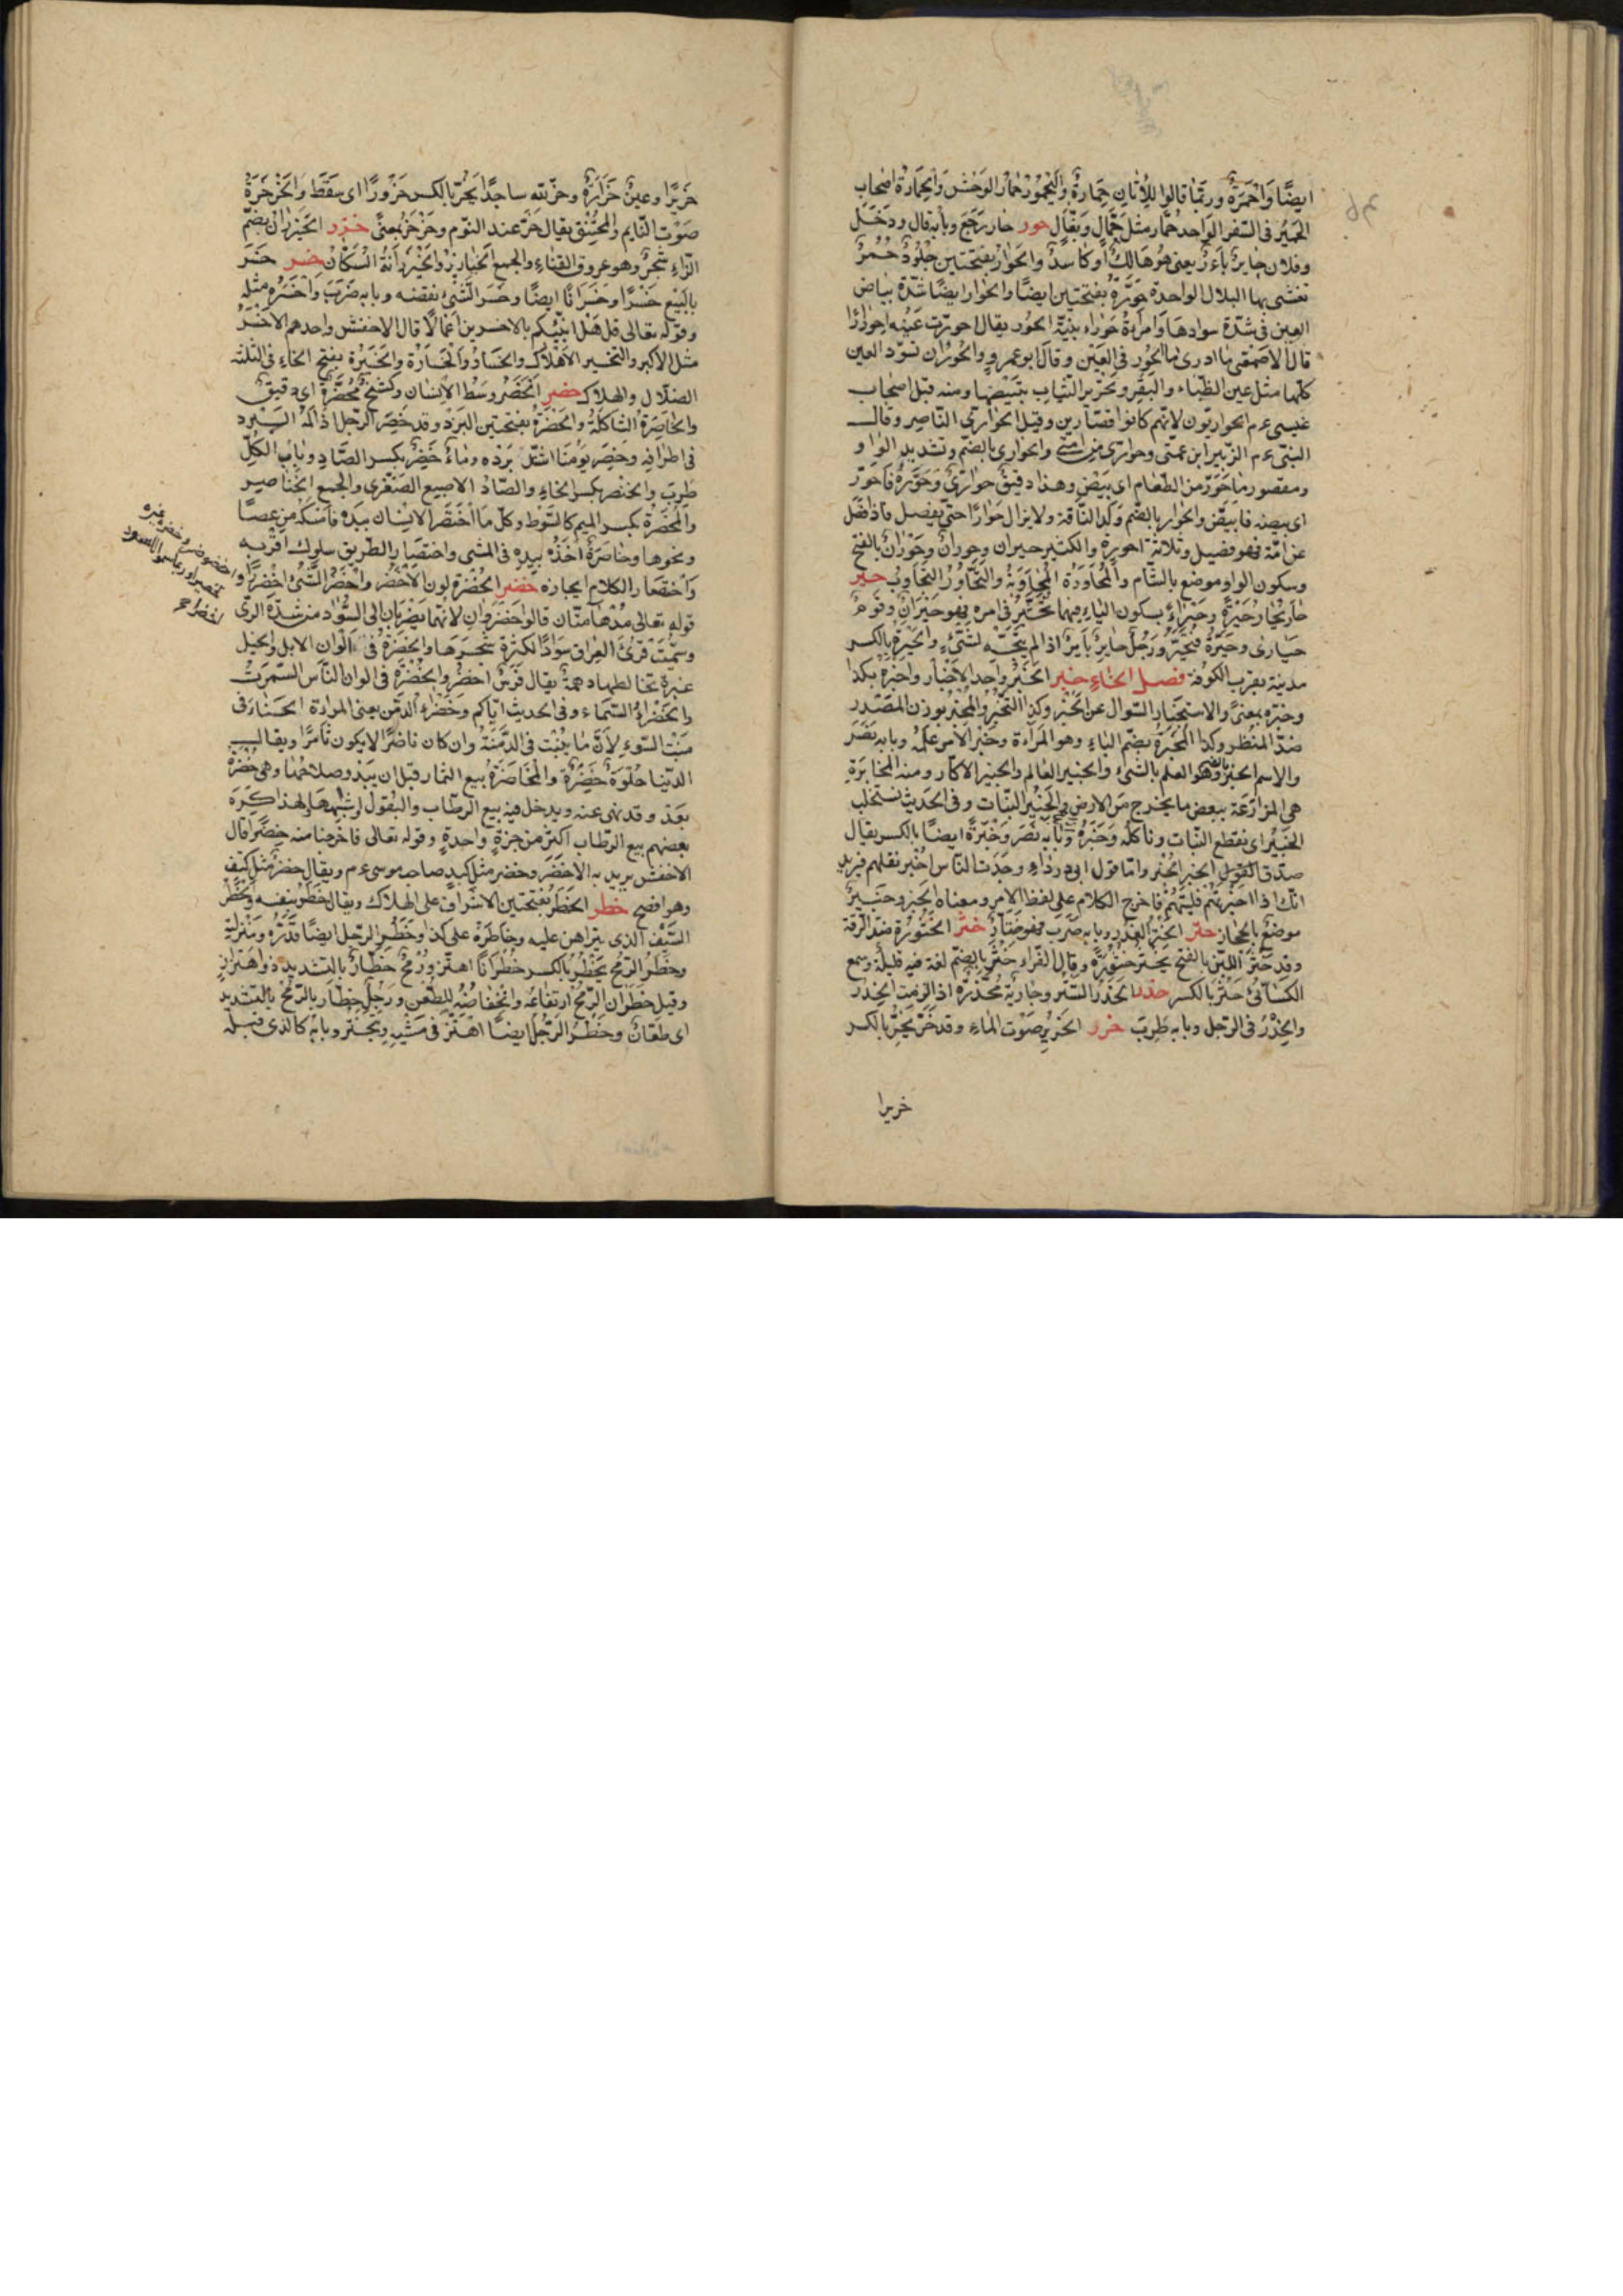 ايضًا وَاَحْمِرَةٌ وربّما قالوا للاَتَانِ حِمَارةٌ وَاليَحْمُورُ حمار الوَحْشِ وَالحَمَّارَةُ اصحاب
الحَمِيْر فى السّفر الواحد حَمَّار مثل جَمّالٍ وَبَغّالٍ حور حار رَجَعَ وبابه قال ودَخَلَ
وفلان حايرٌ باءرٌ يعنى هو هَالِكٌ اَو كاسدٌ وَالحَوَرُ بفتحتين جُلُودٌ حُمُرٌ
تغشّى بها السلال الواحدة حَوَرَةٌ بفتحتين ايضًا والحوار ايضًا شدّة بياض
العين فى شدّة سوادها وَامرأةٌ حَوْراء بيّنة الحَوَر يقال احورّت عَيْنه احورارًا
قال الاصمعى ما ادرى ما الحَوَر فى العَيْن وقال ابو عمرو والحَوَرُ ان تسودّ العين
كلّها مثل عين الظّباء والبقر وتحوير الثياب تبييضها ومنه قيل اصحاب
عيسى ع م الحواريّون لانّهم كانوا قصّارين وقيل الحوارىّ النّاصر وقال
النبىّ ع م الزّبير ابن عمّتى وحوارىّ من امّتى والحوارى بالضمّ وتشديد الواو
ومقصور ما حوّر من الطّعام اى بيّض وهذا دقيق حوّارىٌ وَحَوَّرَهُ فاحورّ
اى بيضه فابيضّ والحوار بالضّم وَلَدُ النّاقة ولا يزال حُوَارًا حتى يفصل فاذا فصل
عن امّه فهو فصيل وثلاثة احوِرة والكثير حيران وحوران وحَوْران بالفتح
وسكون الواو موضع بالشام والمُحَاورَة المُجَاوَبة والتّحاوُرُ التّجاوبُ حير
حار يحار حَيْرَةً وحَيْرًا بسكون الياء فيهما تَحيّر فى امره فهو حَيْرَان وقومٌ
حَيَارى وحَيَّرَه فَتحيَّر ورَجُل حايرٌ بايرٌ اذا لم يتّجه لشىءٍ والحِيرة بالكسر
مدينة بقرب الكوفة فصل الخاء خبر الخَبَرُ واحد الاخبار واخبره بكذا
وخبّره بمعنًى والاستخبار السّوال عن الخبر وكذا التّخبّر والمَخْبَرُ بوزن المَصْدَر
ضدّ المنظر وكذا المخبرة بضم الباء وهو المَرآة وخَبَرَ الامر عَلِمَهُ وبابه نَصَرَ
والاسم الخُبر بالضمّ وهو العلم بالشىء والخبير العالم والخبير الاكّار ومنه المخابرة
هى المزارَعة ببعض ما يخرج من الارض والخَبير النبات وفى الحَديث نستخلب
الخَبِيْرَ اى نقطع النّبات وناكله وَخَبَرَهُ وبابه نَصَرَ وَخِبْرَةً ايضًا بالكسر يقال
صدّق الخَبَر الخُبر وامّا قول ابى درداء وجدت النّاس اخبُر تقلهم فيريد
انّك اذا اخبَرْتَهُم قليتَهُم فاخرج الكلام على لفظ الامر ومعناه الخبر وخَيْبَر
موضع بالحجاز ختر الخَتْر الغَدْر وبابه ضَرَب فهو خَتّارٌ خثر الخُثُورة ضدّ الرّقّة
وقد خَثَر اللّبَن بالفتح يَخثُر خُثورة وقال الفرّاء خَثُر بالضمّ لغة فيه قليلة وسمع
الكسائىّ خَثِر بالكسر خدر الخِدْر السّتر وجارية مُخَدَّرَة اذا الزمت الخِدر
والخدَرُ فى الرّجل وبابه طَرِبَ خرر الخَرِيْر صَوْت الماء وقد خَرَّ يَخِرُّ بالكسر
خريرا
خَرِيْرًا وعينٌ خَرّارَةٌ وخرّ لله ساجدًا يَخِرّ بالكسر خرُورًا اى سَقَطَ وَالخَرْخَرَةُ
صَوْت النّايم والمُختَنِق يقال خَرّ عند النّوم وخَرْخَرَ بمعنًى خزر الخَيزُران بضمّ
الزّاء شَجرٌ وهو عروق القناء والجمع الخيازر والخَيْزُرانَةُ السُكّان خسر خَسَرَ
بالبيع خُسْرًا وخُسْرَانًا ايضًا وخَسَرَ الشىء نقصَه وبابه ضَرَبَ وَاَخْسَرَهُ مثله
وقوله تعالى قل هَلْ اُنبّئكم بالاخسرين اَعْمَالًا قال الاخفش واحدهم الاخْسَرُ
مثل الاكبر والتخسير الاهْلَاك والخَسَارُ وَالخَسَارَة والخَيْسَرَة بفتح الخاء فى الثلثه
الضّلال والهلاك خصر الخَصْر وَسَطُ الانسان وكَشْحٌ مُخَصَّرٌ اى دقيقٌ
والخاصِرَةُ الشّاكلةُ والخَصَرُ بفتحتين البَرْد وقد خَصِرَ الرّجل اذا آلمه البَرْد
فى اطرافه وخَصِرَ يَوْمُنَا اشتدّ بَرْدُه وماءٌ خَصِرٌ بكسر الصّاد وبابُ الكلّ
طَرِبَ والخنصِر بكسر الخاء والصّاد الاصبع الصّغْرى والجمع الخناصر
وَالمُخْصَرَة بكسر الميم كالسّوْط وكلّ ما اخْتَصَرَ الانسان بيده فامسكه من عصًا
ونحوها وخاصَرَهُ اَخَذَ بيدِهِ فى المشى واختصار الطريق سلوك اقربه
وَاختصار الكلام ايجازه خضر الخُضْرَة لون الاخضر واخضَرَّ الشّىء اخْضِرارًا
قوله تعالى مُدْهامّتان قالوا خَضْرَوَانِ لانّهما يضْرِبَان الى السَّوَاد من شدّة الرىّ
وسُمّيتْ قُرَى العِرَاق سَوَادًا لكثرة شَجَرِهَا والخُضْرَةُ فى الوان الابل والخيل
غُبرة تخالطها دهمة يقال فَرَسٌ اخضر والخُضْرَةُ فى الوان النّاس السُّمْرَة
والخَضْرَاءُ السّمَاء وفى الحديث ايّاكم وخَضْرَاءَ الدِّمَن يعنى المرأة الحسناء فى
مَنبت السّوء لانّ ما ينبُتُ فى الدّمْنَة وان كان ناضرًا لا يكون ثامرًا ويقال
الدّنيا حُلْوَةٌ خَضِرَةٌ والمُخَاضَرَةُ بيع الثمار قبل ان يبدو صلاحُها وهى خُضْرٌ
بَعْدُ وقد نهى عنه ويدخل فيه بيع الرطاب والبُقول واشباهها لهذا كَرِهَ
بعضهم بيع الرّطاب اكثر من جَزّةٍ واحدةٍ وقوله تعالى فاخرجنا منه خَضِرًا قال
الاخفش يريد به الاخْضَرَ وخضِر مثل كبدٍ صاحب موسى ع م ويقال خِضْر مثل كِتْفٍ
وهو افصح خطر الخَطَر بفتحتين الاشراف على الهلاك ويقال خَاطَر بنفسه والخَطَر
السَّبَق الذى يتراهن عليه وخاطَرَهُ على كذا وخَطَر الرّجل ايضًا قَدْرُه ومَنْزِلته
وخَطَر الرّمح يَخْطِرُ بالكسر خَطَرَانًا اهتزّ ورُمحٌ خَطّارٌ بالتشديد ذو اهتزازٍ
وقيل خَطَرَان الرّمح ارتفاعُه وانخفاضُه للطّعْن ورَجُلٌ خَطّار بالرّمح بالتشديد
اى طعّان وخَطَر الرّجُل ايضًا اهتزّ فى مَشْيِه وتبختر وبابه كالذى قبله